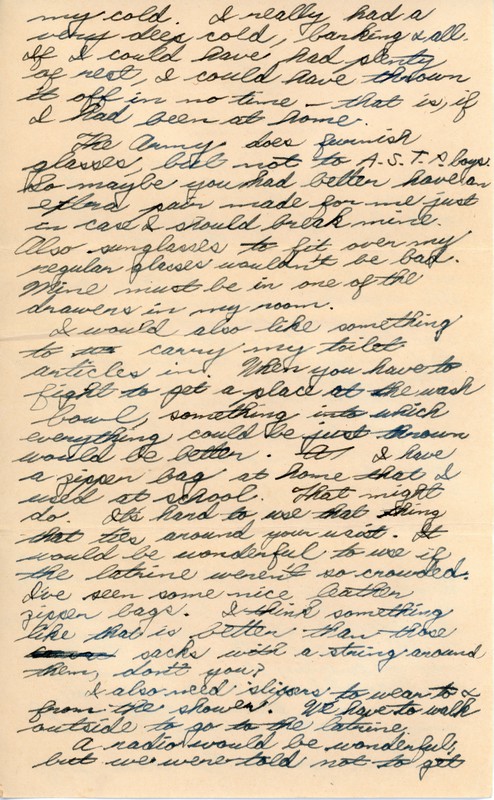 my cold. I really had a
very deep cold, barking & all.
If I could have had plenty
of rest, I could have thrown
it off in no time – that is, if
I had been at home.
The Army does furnish
glasses, but not to A.S.T.P. boys.
So maybe you had better have an
extra pair made for me just
in case I should break mine.
Also sunglasses to fit over my
regular glasses wouldn't be bad.
Mine must be in one of the
drawers in my room.
I would also like something
to carry my toilet
articles in. When you have to
fight to get a place at the wash
bowl, something into which
everything could be just thrown
would be better. I have
a zipper bag at home that I
used at school. That might
do. It's hard to use that thing
that ties around your waist. It
would be wonderful to use if
the latrine weren't so crowded.
I've seen some nice leather
zipper bags. I think something
like that is better than those
sacks with a string around
them, don't you?
I also need slippers to wear to &
from the shower. We have to walk
outside to go to the latrine.
A radio would be wonderful,
but we were told not to get